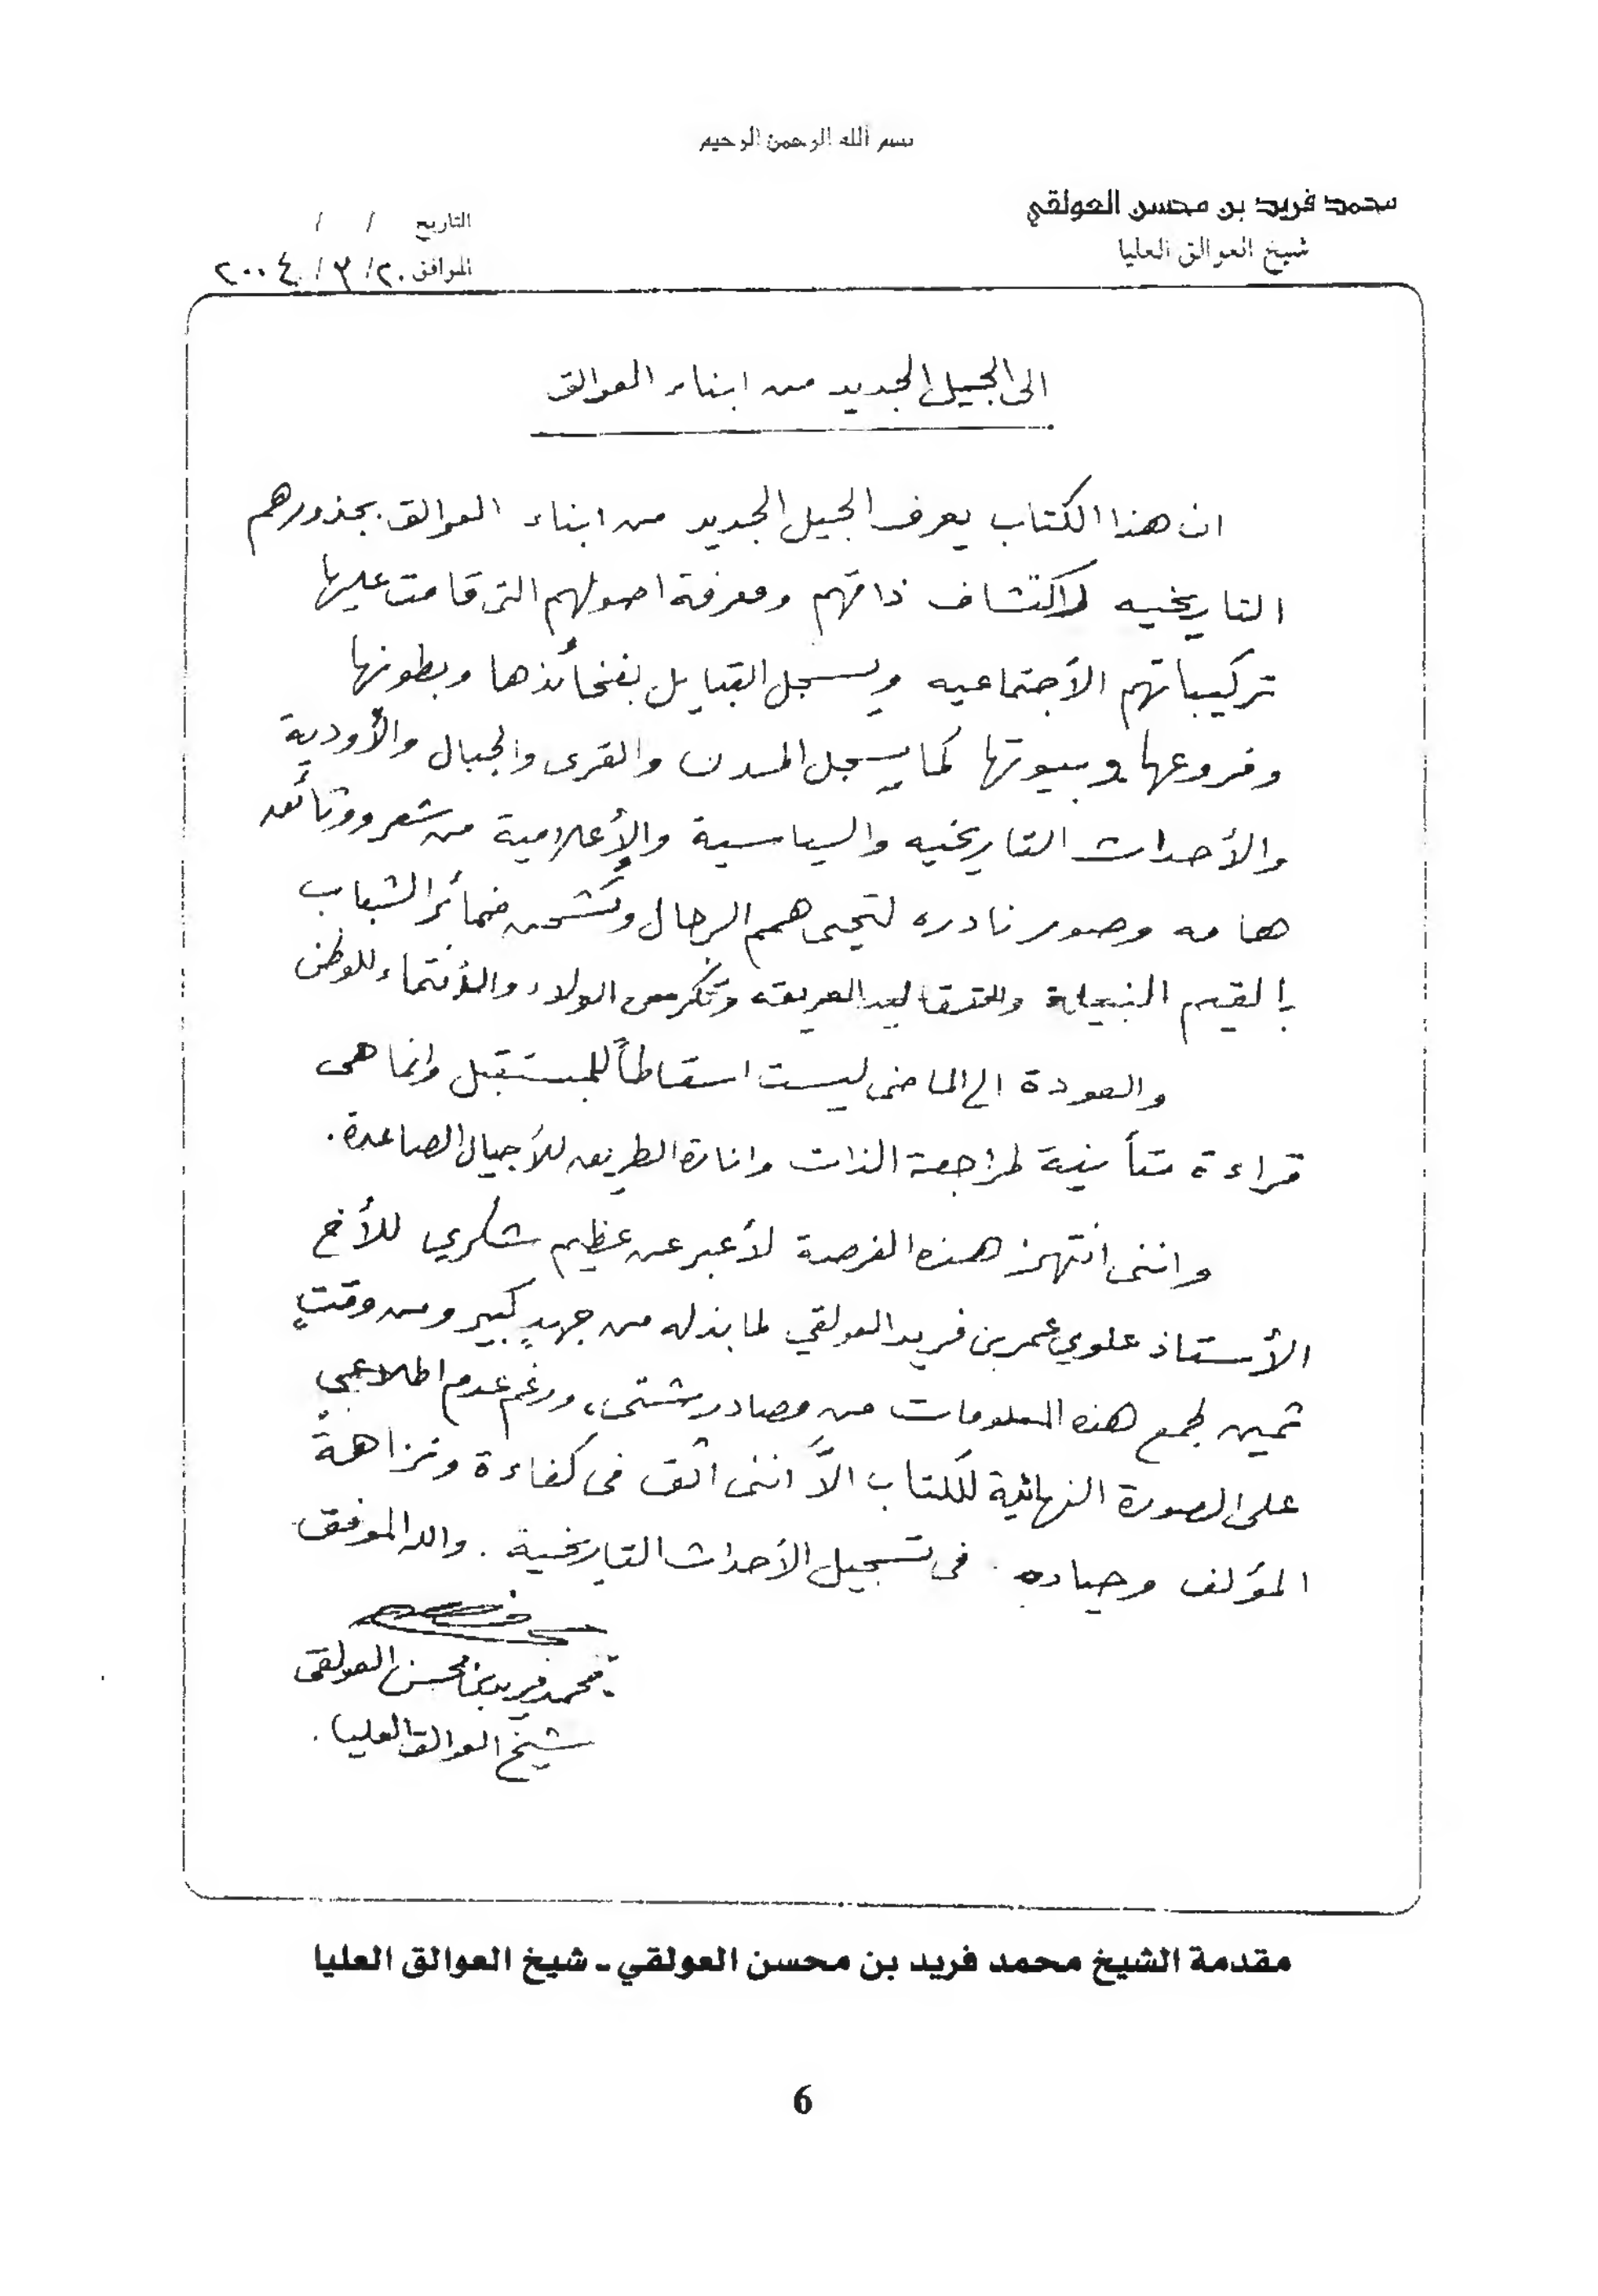 بسم الله الرحمن الرحيم
محمد فريد بن محسن العولقي
شيخ العوالق العليا
التاريخ / /
الموافق ٢٠/ ٣ / ٢٠٠٤
الى الجيل الجديد من ابناء العوالق
ان هذا الكتاب يعرف الجيل الجديد من ابناء العوالق بجذورهم
التاريخيه لاكتشاف ذاتهم ومعرفة اصولهم التى قامت عليها
تركيباتهم الأجتماعيه ويسجل القبايل بفخائذها وبطونها
وفروعها وبيوتها كما يسجل المدن والقرى والجبال والأودية
والأحداث التاريخيه والسياسية والإعلامية من شعر ووثائق
هامه وصور نادره لتحيى همم الرجال وتشحن ضمائر الشباب
بالقيم النبيلة والتقاليد العريقه وتكرس الولاء والأنتماء للوطن
والعودة الى الماضى ليست اسقاطاً للمستقبل وانما هى
قراءة متأنية لمراجعة الذات وانارة الطريق للأجيال الصاعدة.
واننى انتهز هذه الفرصة لأعبر عن عظيم شكري للأخ
الأستاذ علوي عمر بن فريد العولقي لما بذله من جهدٍ كبير ومن وقتٍ
ثمين لجمع هذه المعلومات من مصادر شتى، ورغم عدم اطلاعي
على الصورة النهائية للكتاب الاَّ اننى اثق فى كفاءة ونزاهة
المؤلف وحياده فى تسجيل الأحداث التاريخية. والله الموفق
محمد فريد بن محسن العولقى
شيخ العوالق العليا.
مقدمة الشيخ محمد فريد بن محسن العولقي ـ شيخ العوالق العليا
6